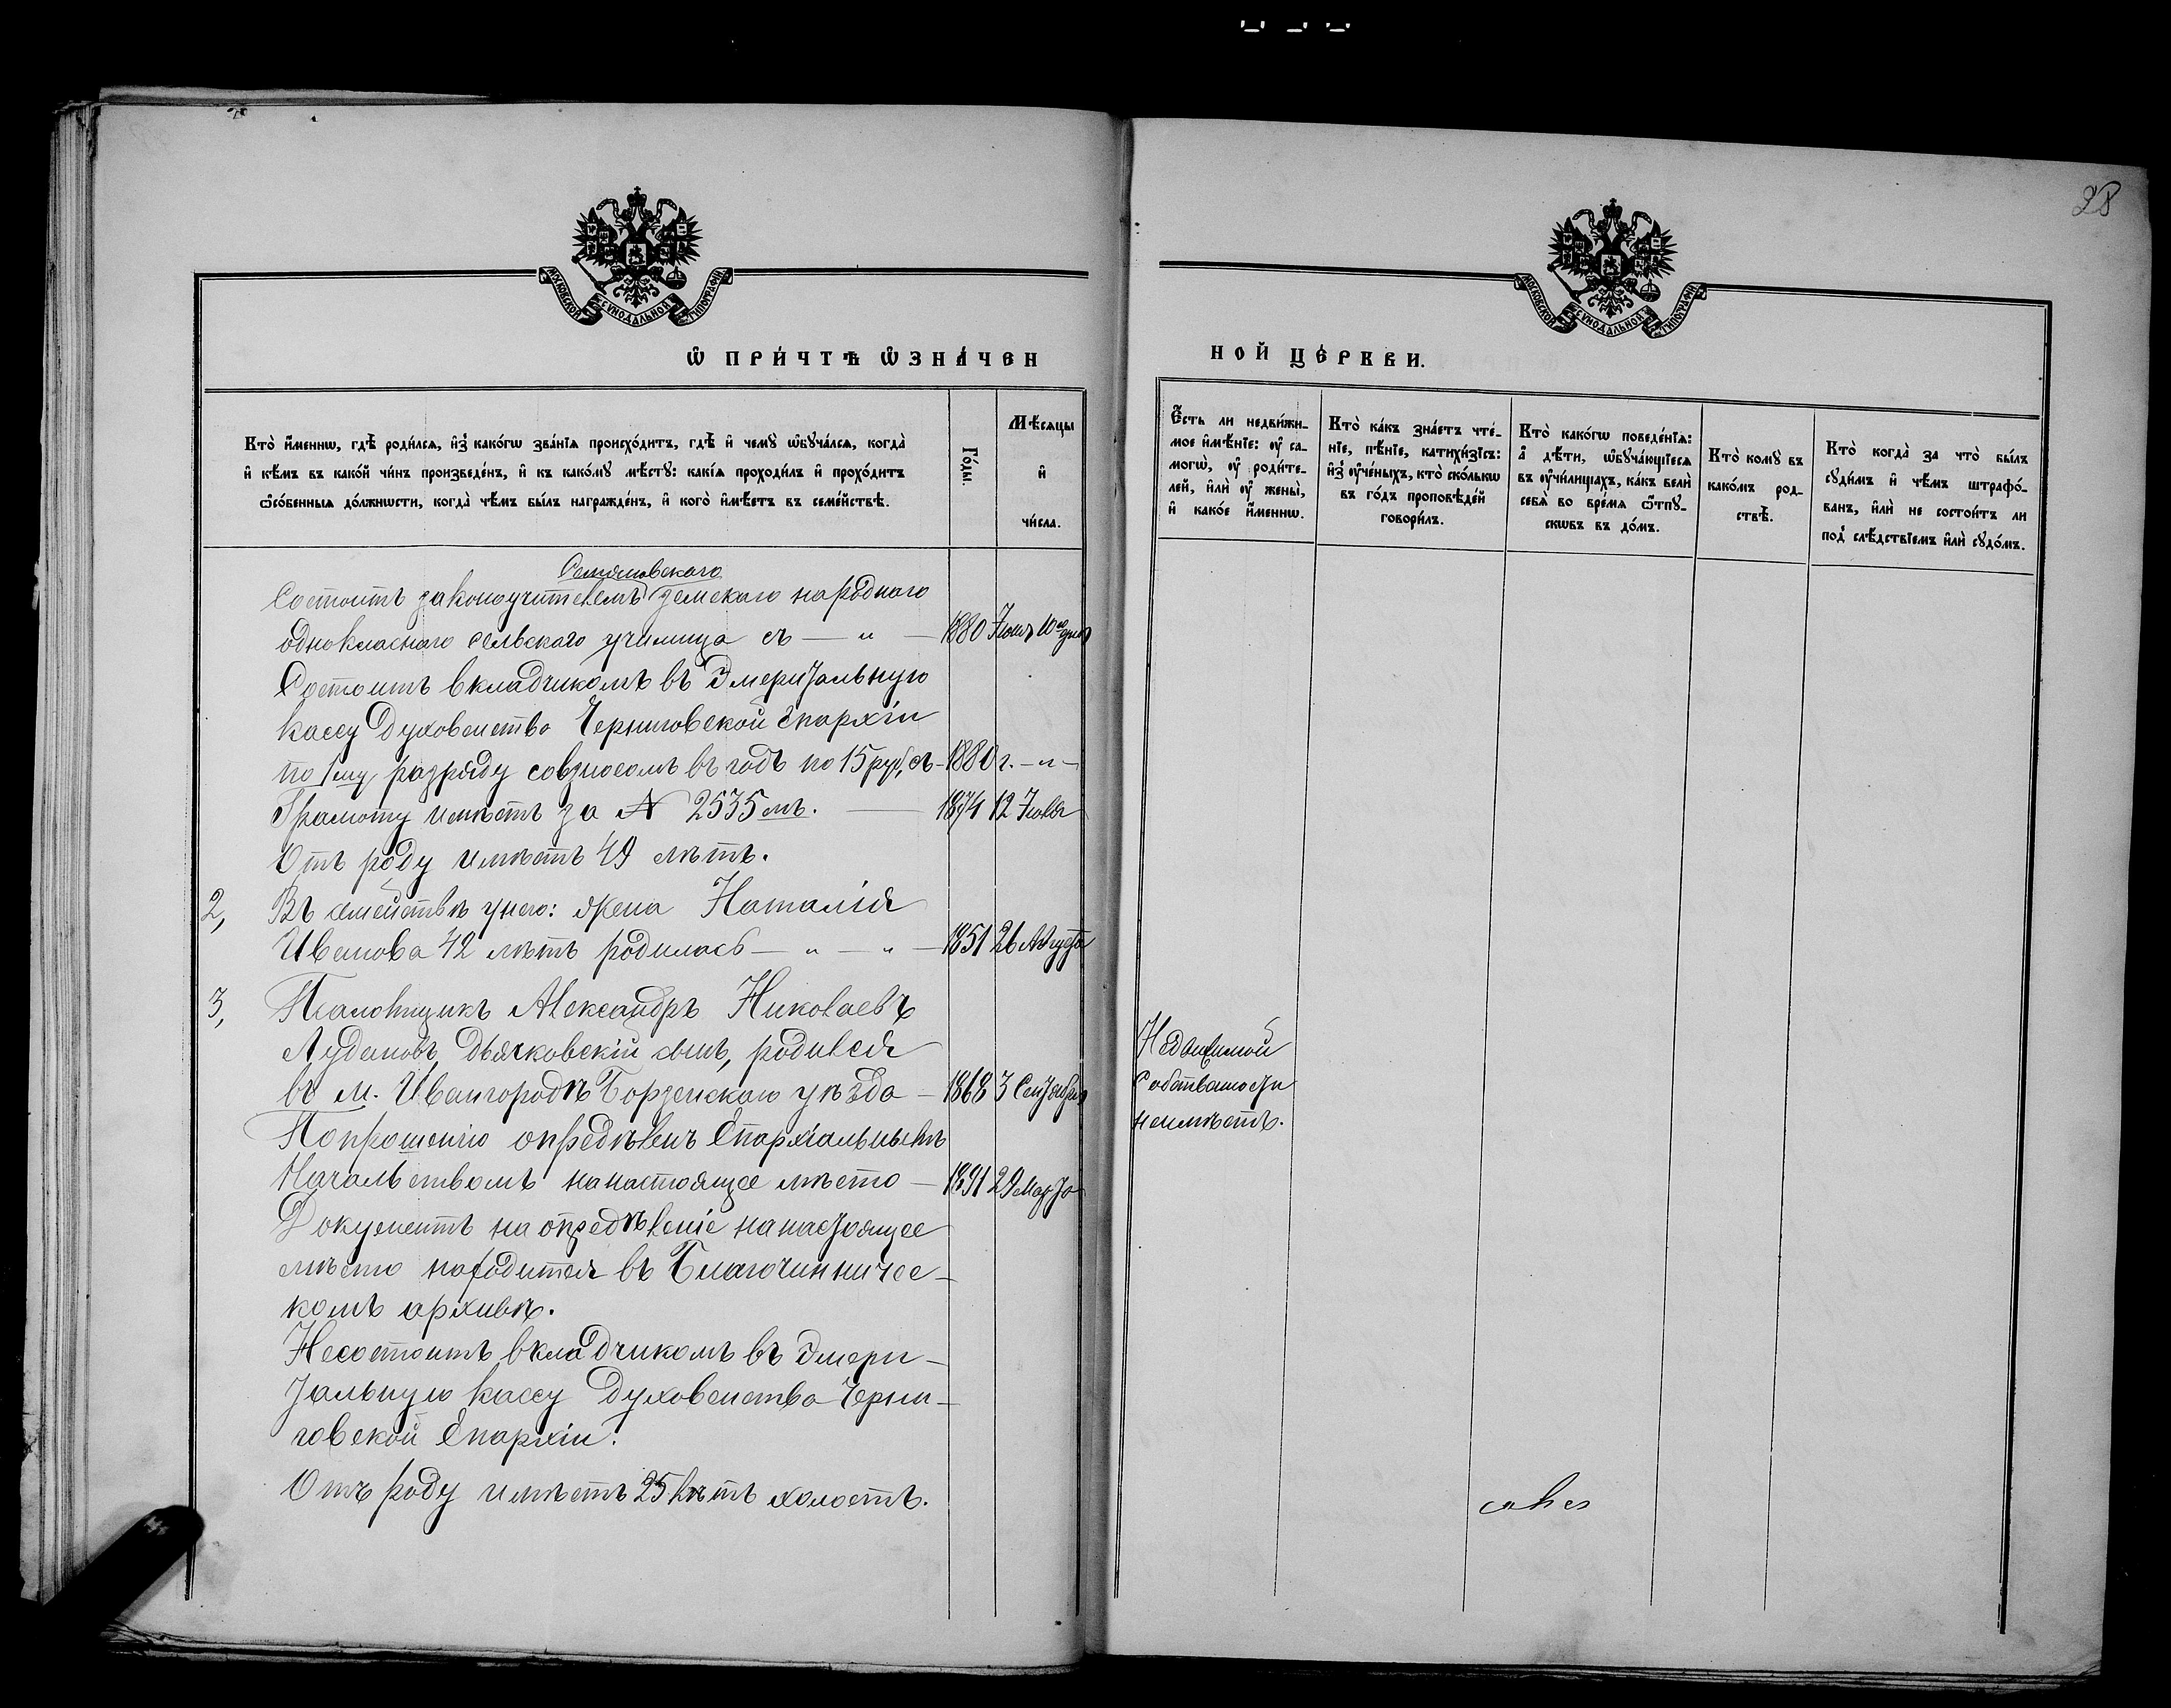 28
МОСКОВСКОЙ СѴНОДАЛЬНОЙ ТИПОГРАФІИ
МОСКОВСКОЙ СѴНОДАЛЬНОЙ ТИПОГРАФІИ
Ѽ ПРИ́ЧТѢ Ѽ҆ЗНА́ЧЕН
НОЙ ЦЕ́РКВИ.
Кто̀ и҆́меннѡ, гдѣ̀ роди́лсѧ, и҆з̾ како́гѡ зва́нїѧ происхо́дитъ, гдѣ̀ и҆ чемꙋ̀ ѡ҆бꙋча́лсѧ, когда̀
и҆ кѣ́мъ въ како́й чи́нъ произведе́нъ, и҆ къ како́мꙋ мѣ́стꙋ: какі́ѧ проходи́лъ и҆ прохо́дитъ
ѻ҆со́бенныѧ до́лжнѡсти, когда̀ чѣ́мъ бы́лъ награжде́нъ, и҆ кого̀ и҆мѣ́етъ въ семе́йствѣ.
Го́ды.
Мѣ́сѧцы
и҆
чи́сла.
Є҆́сть ли недви́жи-
мое и҆мѣ́нїе: оу҆ са-
могѡ̀, оу҆ роди́те-
лей, и҆лѝ оу҆ жены̀,
и҆ како́е и҆́меннѡ.
Кто̀ ка́къ зна́етъ чте́-
нїе, пѣ́нїе, катихи́зїсъ:
и҆з̾ оу҆че́ныхъ, кто̀ ско́лькѡ
въ го́дъ проповѣ́дей
говори́лъ.
Кто̀ како́гѡ поведе́нїѧ:
а҆ дѣ́ти, ѡ҆бꙋча́ющїесѧ
въ оу҆чи́лищахъ, ка́къ велѝ
себѧ̀ во вре́мѧ ѿпꙋ-
скѡвъ въ до́мъ.
Кто̀ комꙋ̀ въ
како́мъ род-
ствѣ̀.
Кто̀ когда̀ за что̀ бы́лъ
сꙋди́мъ и҆ чѣ́мъ штрафо́-
ванъ, и҆лѝ не состои́тъ ли
под̾ слѣ́дствїемъ и҆лѝ сꙋдо́мъ.
Состоитъ законоучителемъ земскаго народнаго
однокласнаго сельскаго училища съ — " — 1880
Состоитъ вкладчикомъ въ Эмеритальную
кассу Духовенства Черниговской Епархіи
по 1му разряду совзносомъ въ годъ по 15 руб, съ - 1880 г. - " -
Грамоту имѣетъ за № 2535 мъ. — 1874 12
Отъ роду имѣетъ 49 лѣтъ.
2, Въ семействѣ унего: жена Наталія
Иванова 42 лѣтъ родилась — " — " — 1851 26 Августа
3, Псаломщикъ Александръ Николаевъ
дьячковскій сынъ, родился
въ м. Ивангородѣ Борзенскаго уѣзда — 1868 3 Сентября
Попрошенію опредѣленъ Епархіальнымъ
Начальствомъ нанастоящее мѣсто — 1891 29 Марта
Документъ на опредѣленіе нанастоящее
мѣсто находится въ Благочинничес-
комъ архивѣ.
Несостоитъ вкладчикомъ въ Эмери-
тальную кассу Духовенства Черни-
говской Епархіи.
Отъ роду имѣетъ 25 лѣтъ холостъ.
Недвижимой
Собственности
неимѣетъ.